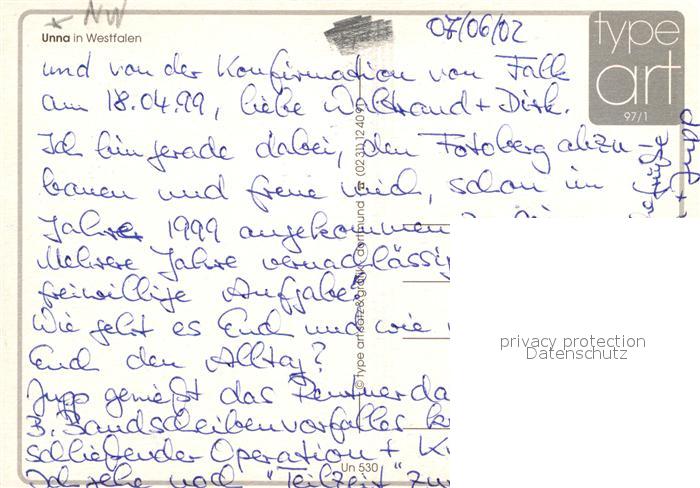 NW
Unna in Westfalen
07/06/02
type
art
97/1
und von der Konfirmation von Falk
am 18.04.99, liebe Waltraud + Dirk.
Ich bin gerade dabei, den Fotoberg abzu-
bauen und freue mich, schon im
Jahre 1999 angekommen
Mehrere Jahre vernachlässig
freiwillige Aufgabe
Wie geht es Euch und wie
Euch der Alltag?
Jupp genießt das Rentnerda
3. Bandscheibenvorfalles
schließender Operation +
Ich gehe noch "Teilzeit"
© type art satz&grafik dortmund fax (0231) 124091
Un 530
privacy protection
Datenschutz